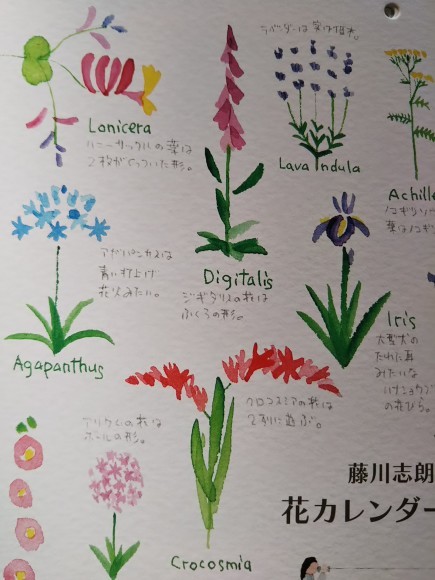 ラベンダーは
Lonicera
ハニーサックルの葉は
2枚がくっついた形。
Lavandula
Achille
アガパンサスは
青い打上げ
花火みたい。
Digitalis
ジギタリスの花は
ふくろの形。
Iris
大型犬の
たれた耳
みたいな
の花びら。
Agapanthus
アリウムの花は
ボールの形。
クロコスミアの花は
2列に並ぶ。
藤川志朗
花カレンダー
Crocosmia